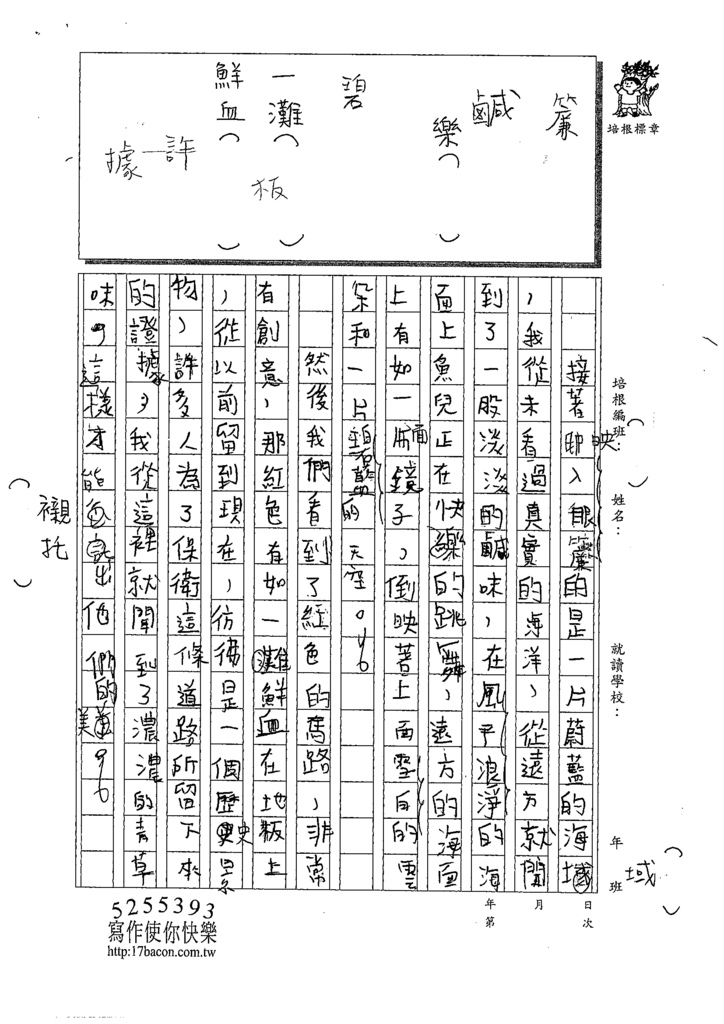 簾
鹹
樂（ ）
碧
一灘（ ）
板
鮮血（ ）
許
據
培根標章
培根編班：
姓名：
就讀學校：
年
班
（ ）
域
（ ）
接著映入眼簾的是一片蔚藍的海域
，我從未看過真實的海洋，從遠方就聞
到了一股淡淡的鹹味，在風平浪淨的海
面上魚兒正在快樂的跳舞，遠方的海面
上有如一面鏡子，倒映著上面空白的雲
朵和一片碧藍的天空。
然後我們看到了紅色的馬路，非常
有創意，那紅色有如一灘鮮血在地板上
，從以前留到現在，彷彿是一個歷史景
物，許多人為了保衛這條道路所留下來
的證據，我從這裡就聞到了濃濃的青草
味，這樣才能色託出他們的美。
（襯托）
年 月 日
第 次
5255393
寫作使你快樂
http:17bacon.com.tw